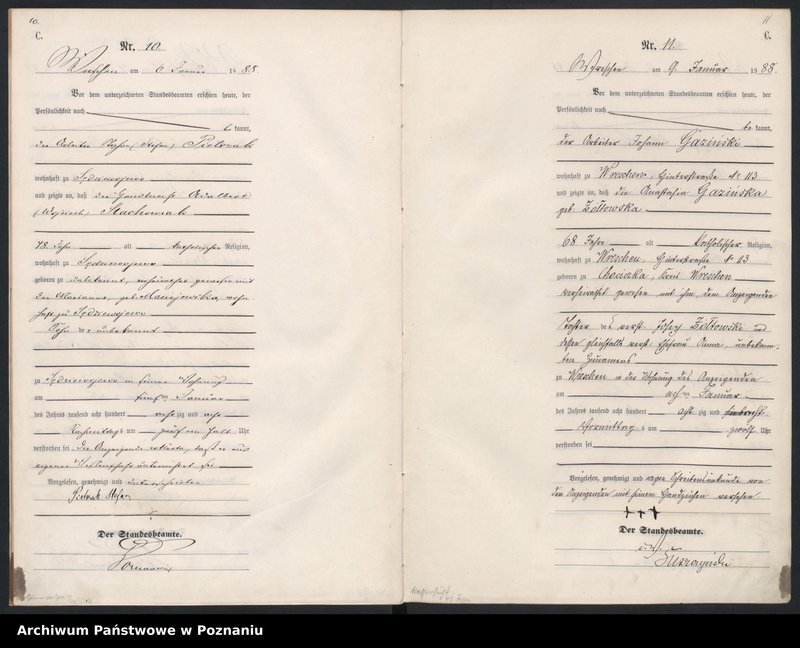 10.
C.
Nr. 10.
Wreschen am 6 Januar 1888.
Vor dem unterzeichneten Standesbeamten erschien heute, der
Persönlichkeit nach
be kannt,
der Arbeiter Stefan (Stefan) Pietrzak
wohnhaft zu
und zeigte an, daß der Adalbert
(Wojciech) Stachowiak
78 Jahr alt katholischer Religion,
wohnhaft zu
geboren zu unbekannt, verheirathet gewesen mit
der Marianna, geb. Maciejewska, wohn-
haft zu
Sohn der unbekannt
zu in seiner Wohnung
am fünften Januar
des Jahres tausend acht hundert acht zig und acht
Nachmittags um Uhr
verstorben sei. Der Anzeigende erklärte, daß er aus
eigener Wissenschaft unterrichtet sei
Vorgelesen, genehmigt und unterschrieben
Pietrzak Stefan
Der Standesbeamte.
11
C.
Nr. 11.
Wreschen am 9. Januar 1888.
Vor dem unterzeichneten Standesbeamten erschien heute, der
Persönlichkeit nach
be kannt,
der Arbeiter Johann Gaziński
wohnhaft zu Wreschen, Hinterstraße № 113
und zeigte an, daß die Anastasia Gazińska
geb. Żółtowska
68 Jahre alt katholischer Religion,
wohnhaft zu Wreschen, Hinterstraße № 113
geboren zu Chociczka, Kreis Wreschen
verheirathet gewesen mit ihm, dem Anzeigenden
Tochter des verst. Josef Żółtowski und
dessen gleichfalls verst. Ehefrau Anna, unbekann-
ten Zunamens
zu Wreschen in der Wohnung des Anzeigenden
am achten Januar
des Jahres tausend acht hundert acht zig und acht
Vormittag s um zwölf Uhr
verstorben sei
Vorgelesen, genehmigt und wegen Schreibensunkunde von
dem Anzeigenden mit seinem Handzeichen versehen
+++
Der Standesbeamte.
Archiwum Państwowe w Poznaniu